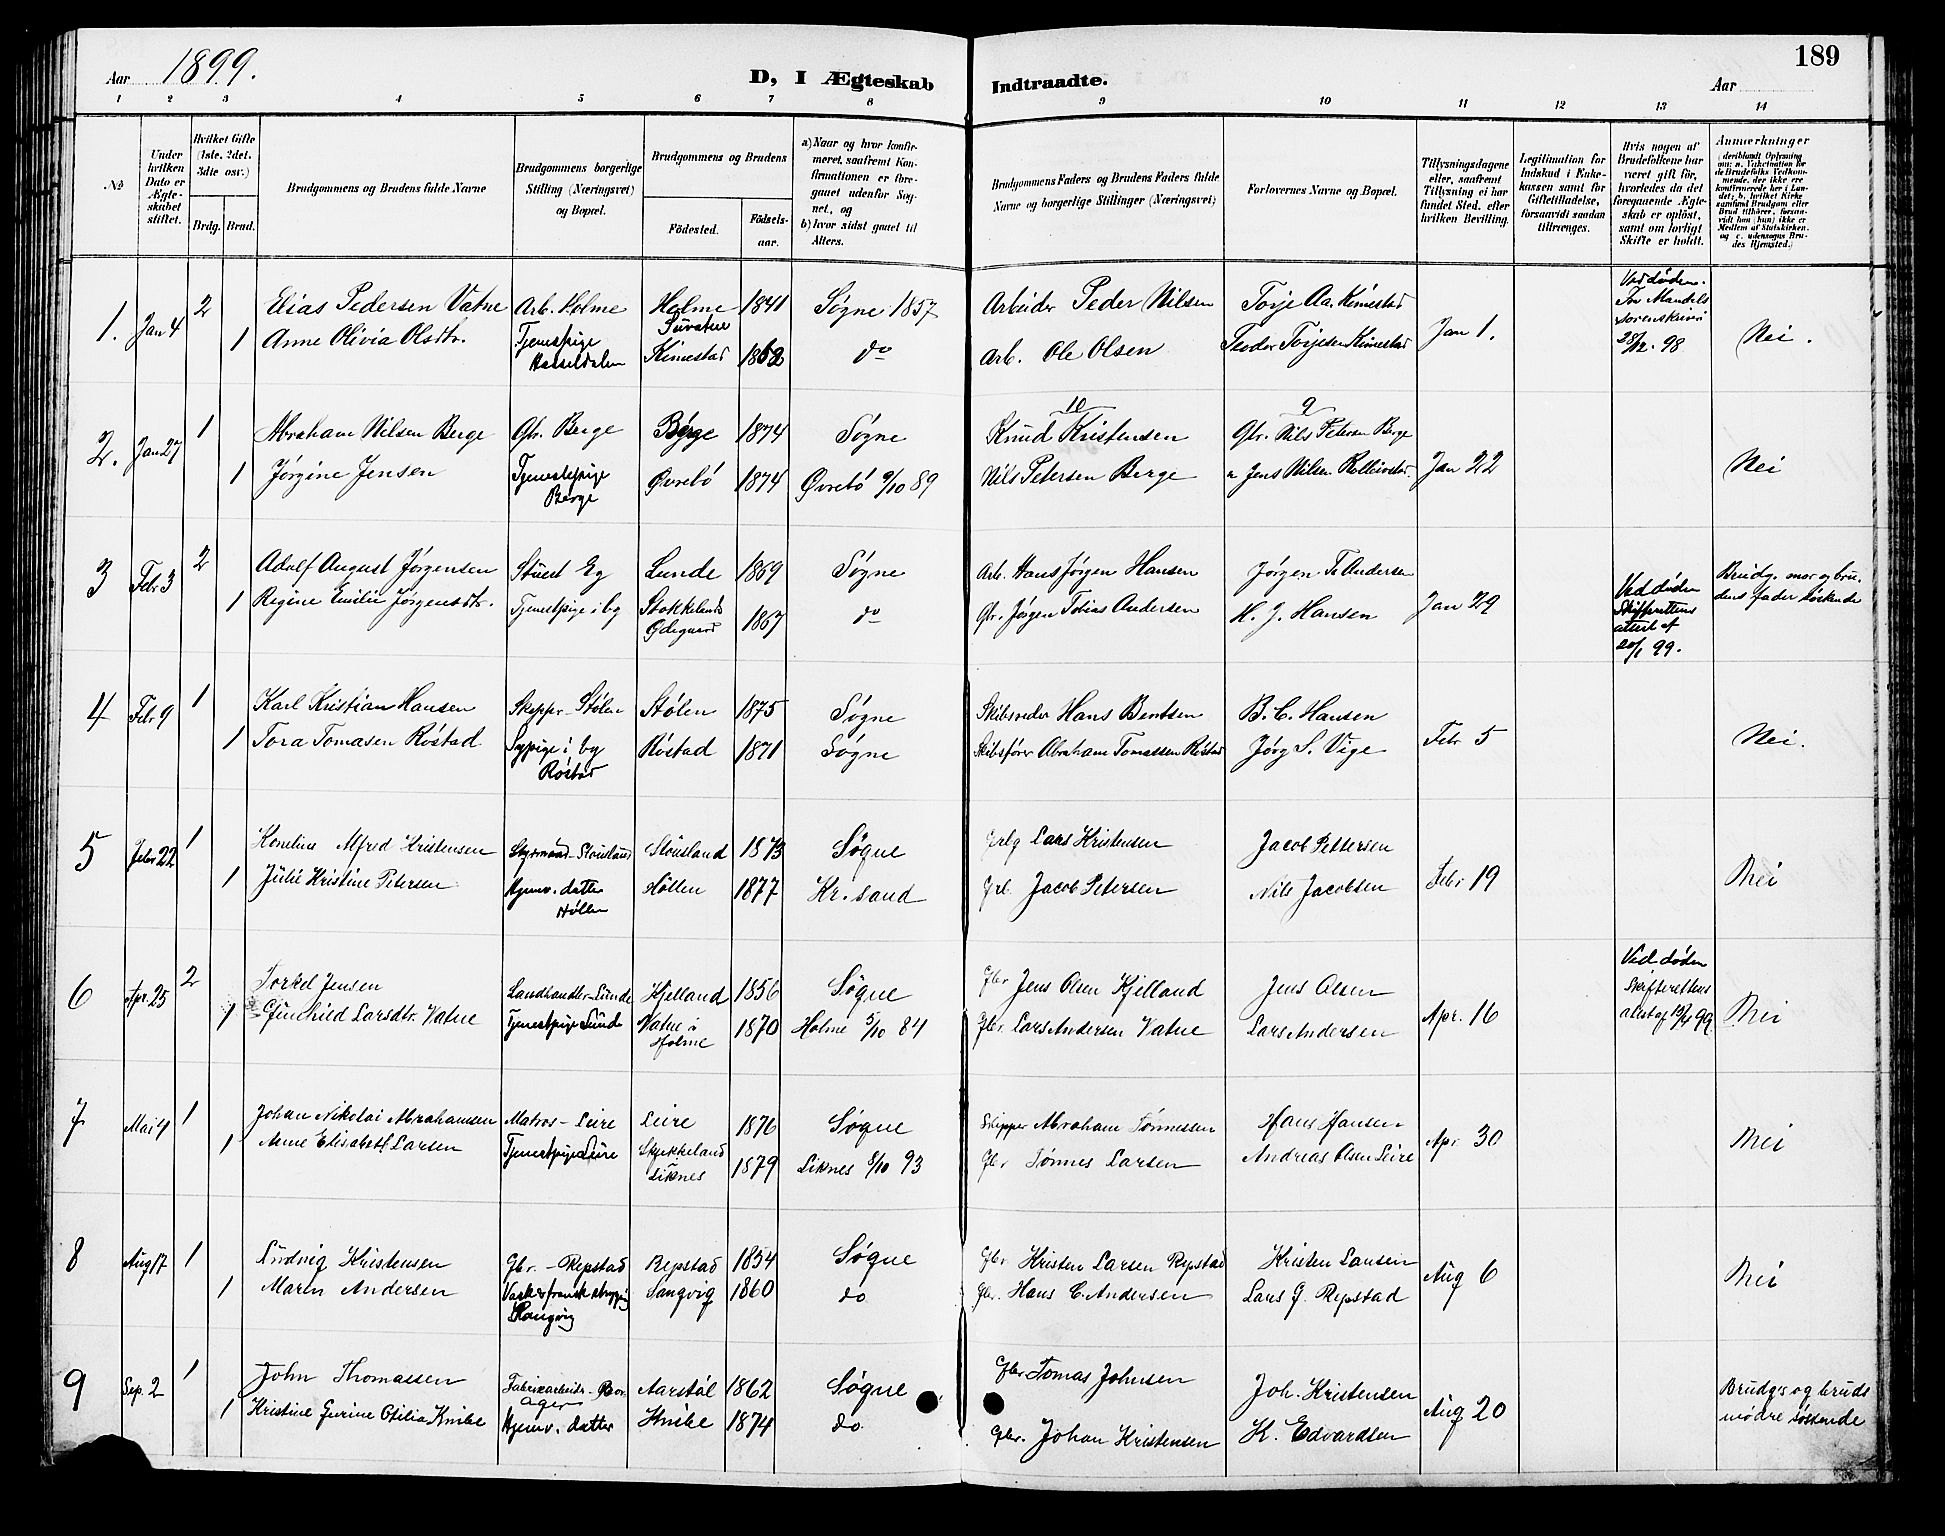 Aar 1899.
D, I Ægteskab Indtraadte.
Aar 189
1 2 3 4 5 6 7 8 9 10 11 12 13 14
No
Under hvilken Dato er Ægteskabet stiftet.
Hvilket Gifte (1ste, 2det, 3die osv.)
Brdg. Brud.
Brudgommens og Brudens fulde Navne
Brudgommens borgerlige Stilling (Næringsvei) og Bopæl.
Brudgommens og Brudens
Födested. Födselsaar.
a) Naar og hvor konfirmeret, saafremt Konfirmationen er foregaaet udenfor Sognet, og
b) hvor sidst gaaet til Alters.
Brudgommens Faders og Brudens Faders fulde Navne og borgerlige Stillinger (Næringsvei)
Forlovernes Navne og Bopæl.
Tillysningsdagene eller, saafremt Tillysning ei har fundet Sted, efter hvilken Bevilling.
Legitimation for Indskud i Enkekassen samt for Giftetilladelse, forsaavidt saadan tiltrænges.
Hvis nogen af Brudefolkene har været gift för, hvorledes da det foregaaende Ægteskab er oplöst, samt om lovligt Skifte er holdt.
Anmerkninger
1. Jan 4 2 Elias Pedersen Vatne Arb. Holme Holme 1841 Søgne 1857 Arbeider Peder Nilsen Torje Aa. Kimestad Jan 1. Ved døden. Nei.
1 Anne Olivia Olsdtr. Tjenestpige Hasseldalen Kimestad 1862 do Arb. Ole Olsen Teodor Torjesen Kimestad 28/12. 98
2. Jan 27 1 Abraham Nilsen Berge Gbr. Berge Berge 1874 Søgne Knud Kristensen 10 Gbr. Nils Petersen Berge 9 Jan 22 Nei
1 Jørgine Jensen Tjenestepige Berge Øvrebö 1874 Øvrebö 9/10 89 Nils Petersen Berge " Jens Nilsen
3 Febr 3 2 Adolf August Jørgensen Stuert Eg Lunde 1869 Søgne Arb. Hans Jørgen Hansen Jørgen T. Andersen Jan 29 Ved døden Skifterettens attest af 20/1 99. Brudg. mor og brudens fader søskende
1 Regine Emilie Jørgensdtr. Tjenestpige i by Stokkeland Ødegaard 1867 do Gbr. Jørgen Tobias Andersen H. J. Hansen
4 Febr 9 1 Karl Kristian Hansen Skipper - Stølen Stølen 1875 Søgne Skibsreder Hans Bentsen B. C. Hansen Febr 5 Nei.
1 Tora Tomasen Röstad Sypige i by Röstad Röstad 1871 Søgne Skibsfører Abraham Tomassen Röstad Jørg S. Vige
5 Febr 22 1 Kornelius Alfred Kristensen Styrmand - Stousland Stousland 1873 Søgne Lars Kristensen Jacob Pettersen Febr 19 Nei
1 Julie Kristine Petersen Hjemv. datter Høllen Høllen 1877 Kr.sand Jacob Petersen Nils Jacobsen
6 Apr. 25 2 Torkel Jensen Landhandler - Lunde Kjelland 1856 Søgne Gbr Jens Olsen Kjelland Jens Olsen Apr. 16 Ved døden Skifterettens attest af 12/4 99 Nei
1 Gunhild Larsdtr. Vatne Tjenestpige Lunde Vatne i Holme 1870 Holme 5/10 84 Gbr. Lars Andersen Vatne Lars Andersen
7 Mai 4 1 Johan Nikolai Abrahamsen Matros - Leire Leire 1876 Søgne Skipper Abraham Tønnessen Hans Hansen Apr 30 Nei
1 Anne Elisabeth Larsen Tjenestpige Leire Skjekkeland Liknes 1879 Liknes 8/10 93 Gbr Tønnes Larsen Andreas Olsen Leire
8 Aug 17 1 Ludvig Kristensen Gbr. - Repstad Repstad 1854 Søgne Gbr Kristen Larsen Repstad Kristen Larsen Aug 6 Nei
1 Maren Andersen Langvig 1860 do Gbr. Hans C. Andersen Lars G. Repstad
9 Sep. 2 1 John Thomassen Fabrikarbeider Aarstøl 1862 Søgne Gbr Tomas Johnsen Joh. Kristensen Aug 20 Brudgs og bruds mødre søskende
1 Kristine Gurine Otilia Knibe Hjemv. datter Knibe 1874 do Gbr. Johan Kristensen K. Edvardsen